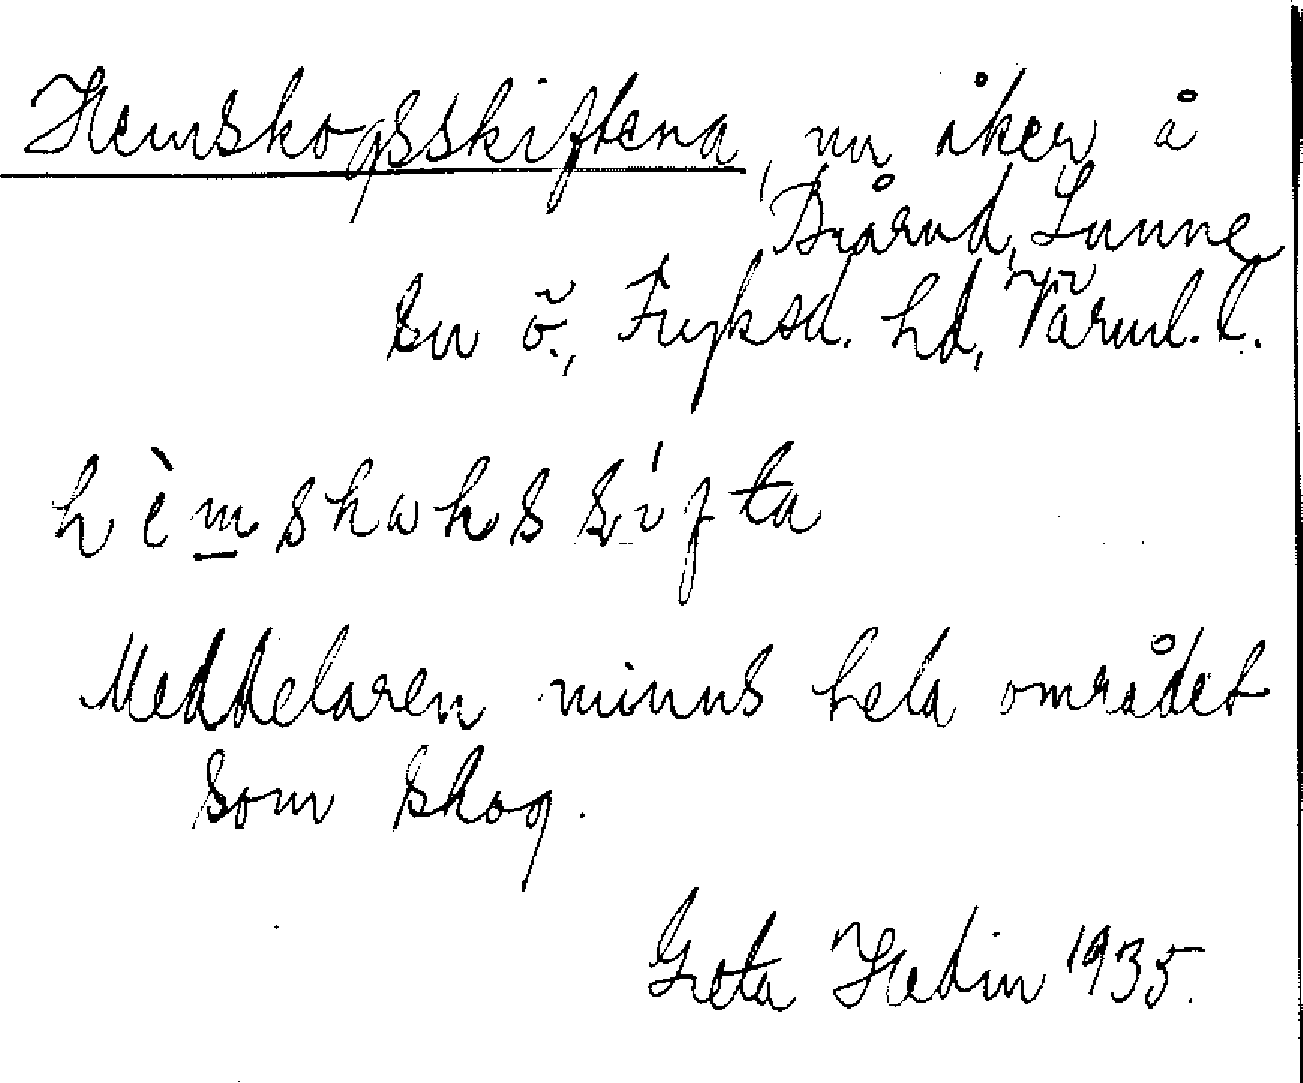 Hemskogsskiftena, nu åker å
Bjårud, Sunne
sn ö., Fryksd. hd, Värml. l.
hèmskωkssífta
Meddelaren minns hela området
som skog.
Greta Hedin 1935.